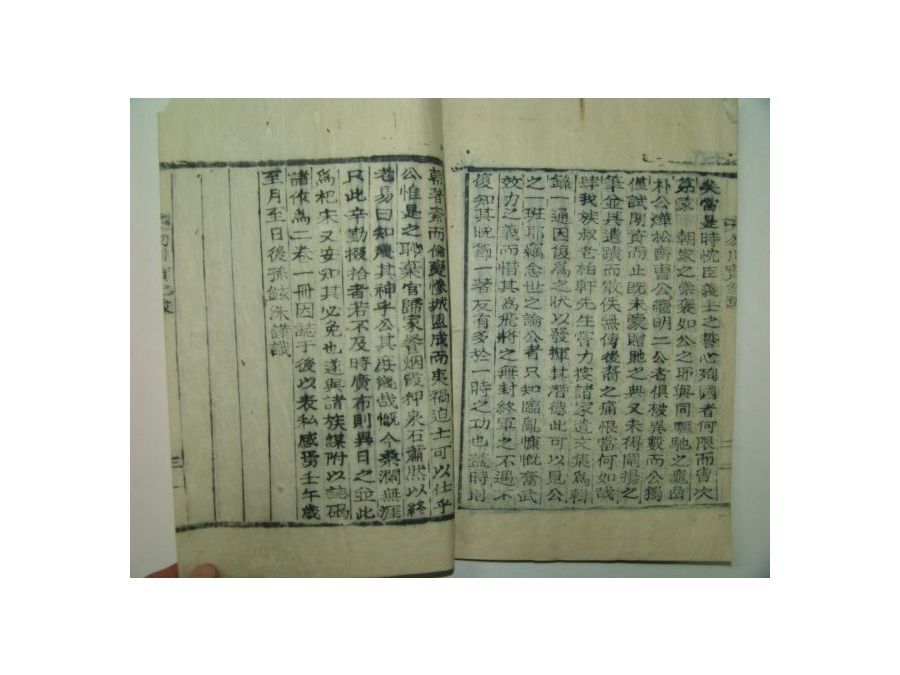 矣當是時忱臣義士之誓心殉國者何限而皆次
第蒙 朝家之崇褒如公之聯與同驅馳之龜嵒
朴公燁松齋曺公繼明二公者俱被異數而公獨
僅試閒資而止旣未蒙貤贈之典又未得闡揚之
筆並與遺蹟而散佚無傳後裔之痛恨當何如哉
肆我族叔老柏軒先生嘗力搜諸家遺文集爲輯
錄一通因復爲之狀以發揮其潛德此可以見公
之一班耶竊念世之論公者只知臨亂慷慨奮武
效力之義而惜其爲飛將之無封終軍之不遇不
復知其晩節一著反有多於一時之功也蓋時則
朝著紊而倫斁慘城盟成而夷禍迫士可以仕乎
公惟是之恥棄官歸家餐烟霞枕泉石蕭然以終
老易曰知幾其神乎公其庶幾哉慨今桑瀾無涯
只此辛勤掇拾者若不及時廣布則異日之並此
爲杞宋又安知其必免也遂與諸族謀附以誌碣
諸作爲二卷一冊因誌于後以表私感焉壬午歲
至月至日後孫鉉洙謹識